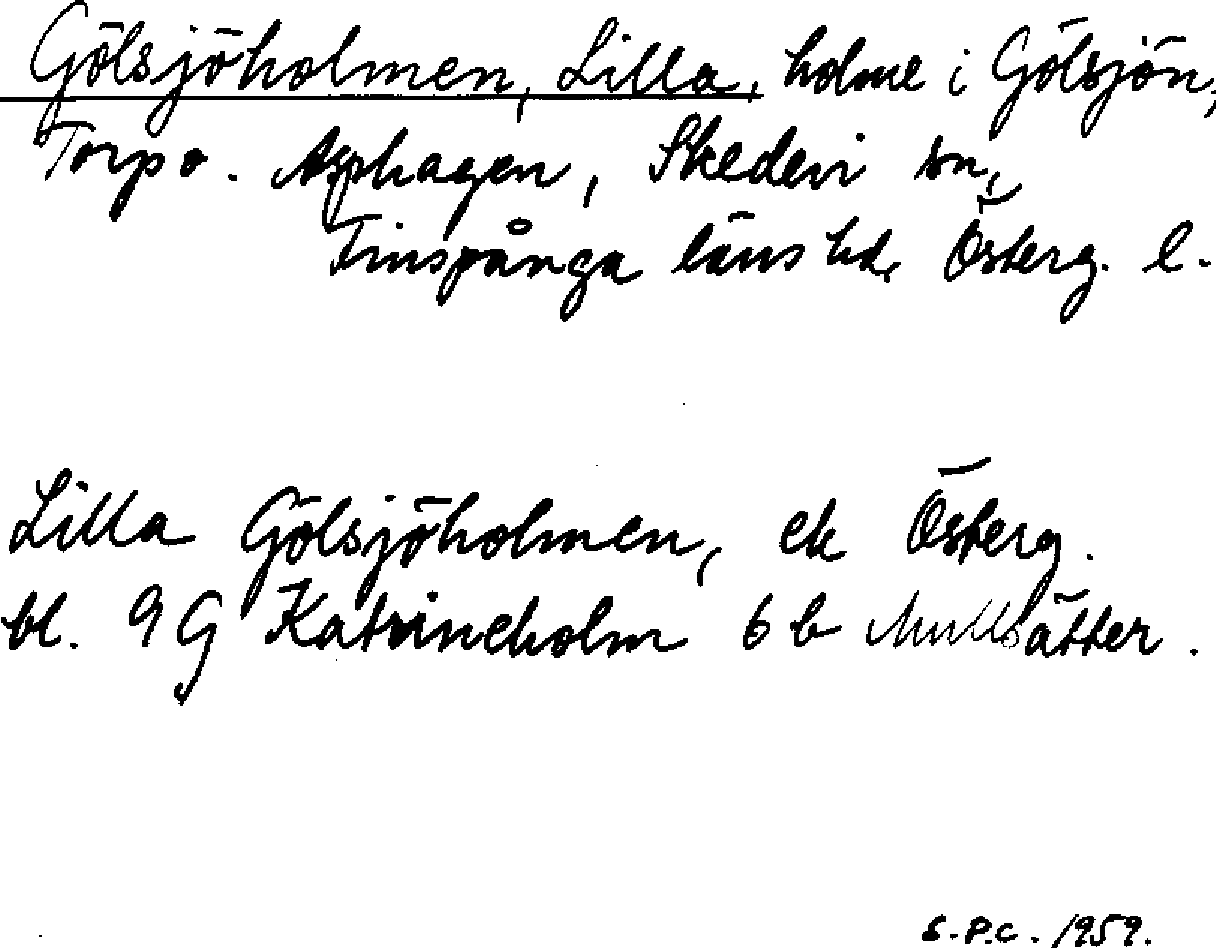 Gölsjöholmen, Lilla, holme i Gölsjön,
Torp o. Asphagen, Skedevi sn,
Finspånga läns hd, Österg. l.
Lilla Gölsjöholmen, ek Österg.
bl. 9G Katrineholm 6 b Mullsätter.
S.P.C. 1959.